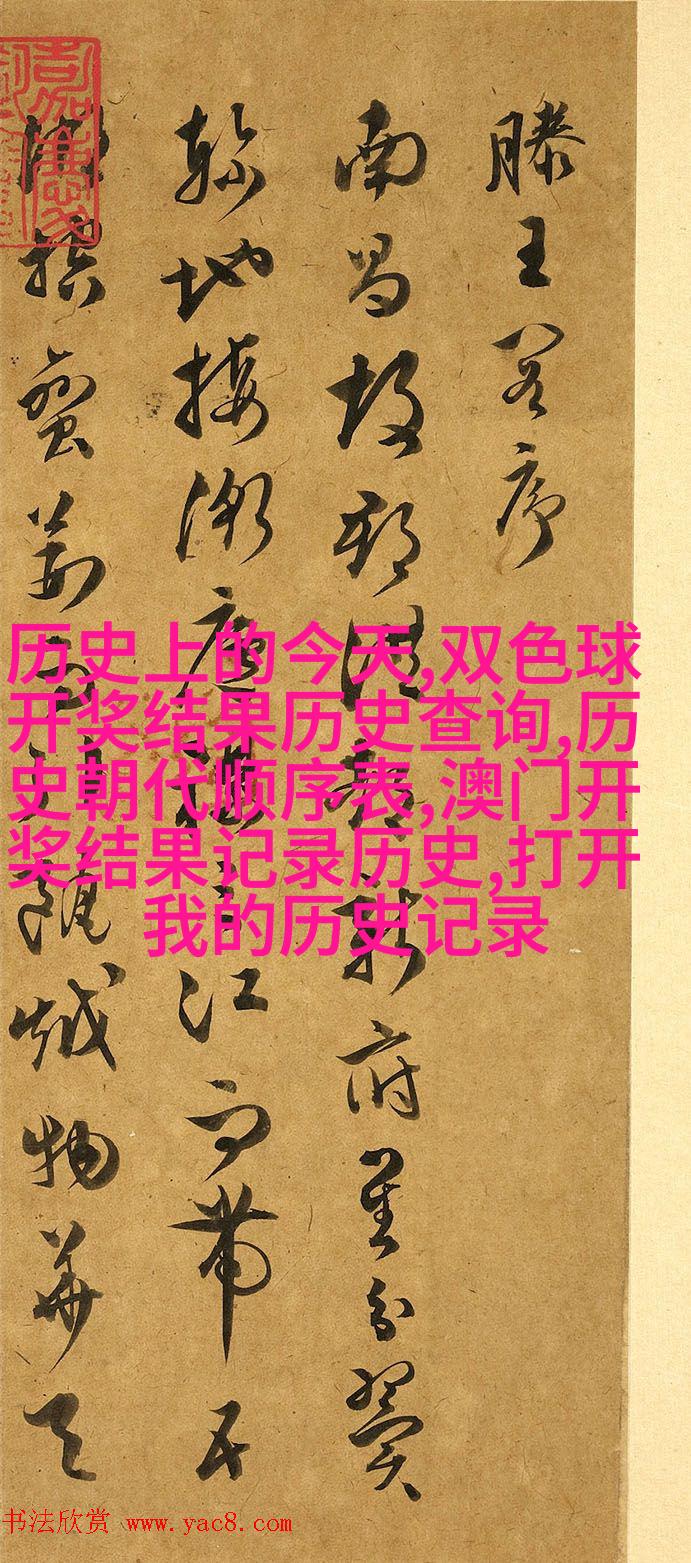 滕王閣序
南昌故郡洪都新府星分翼
軫地接衡廬襟三江而帶五
湖控蠻荊而引甌越物華天
历史上的今天,双色球
开奖结果历史查询,历
史朝代顺序表,澳门开
奖结果记录历史,打开
我的历史记录
书法欣赏 www.yac8.com